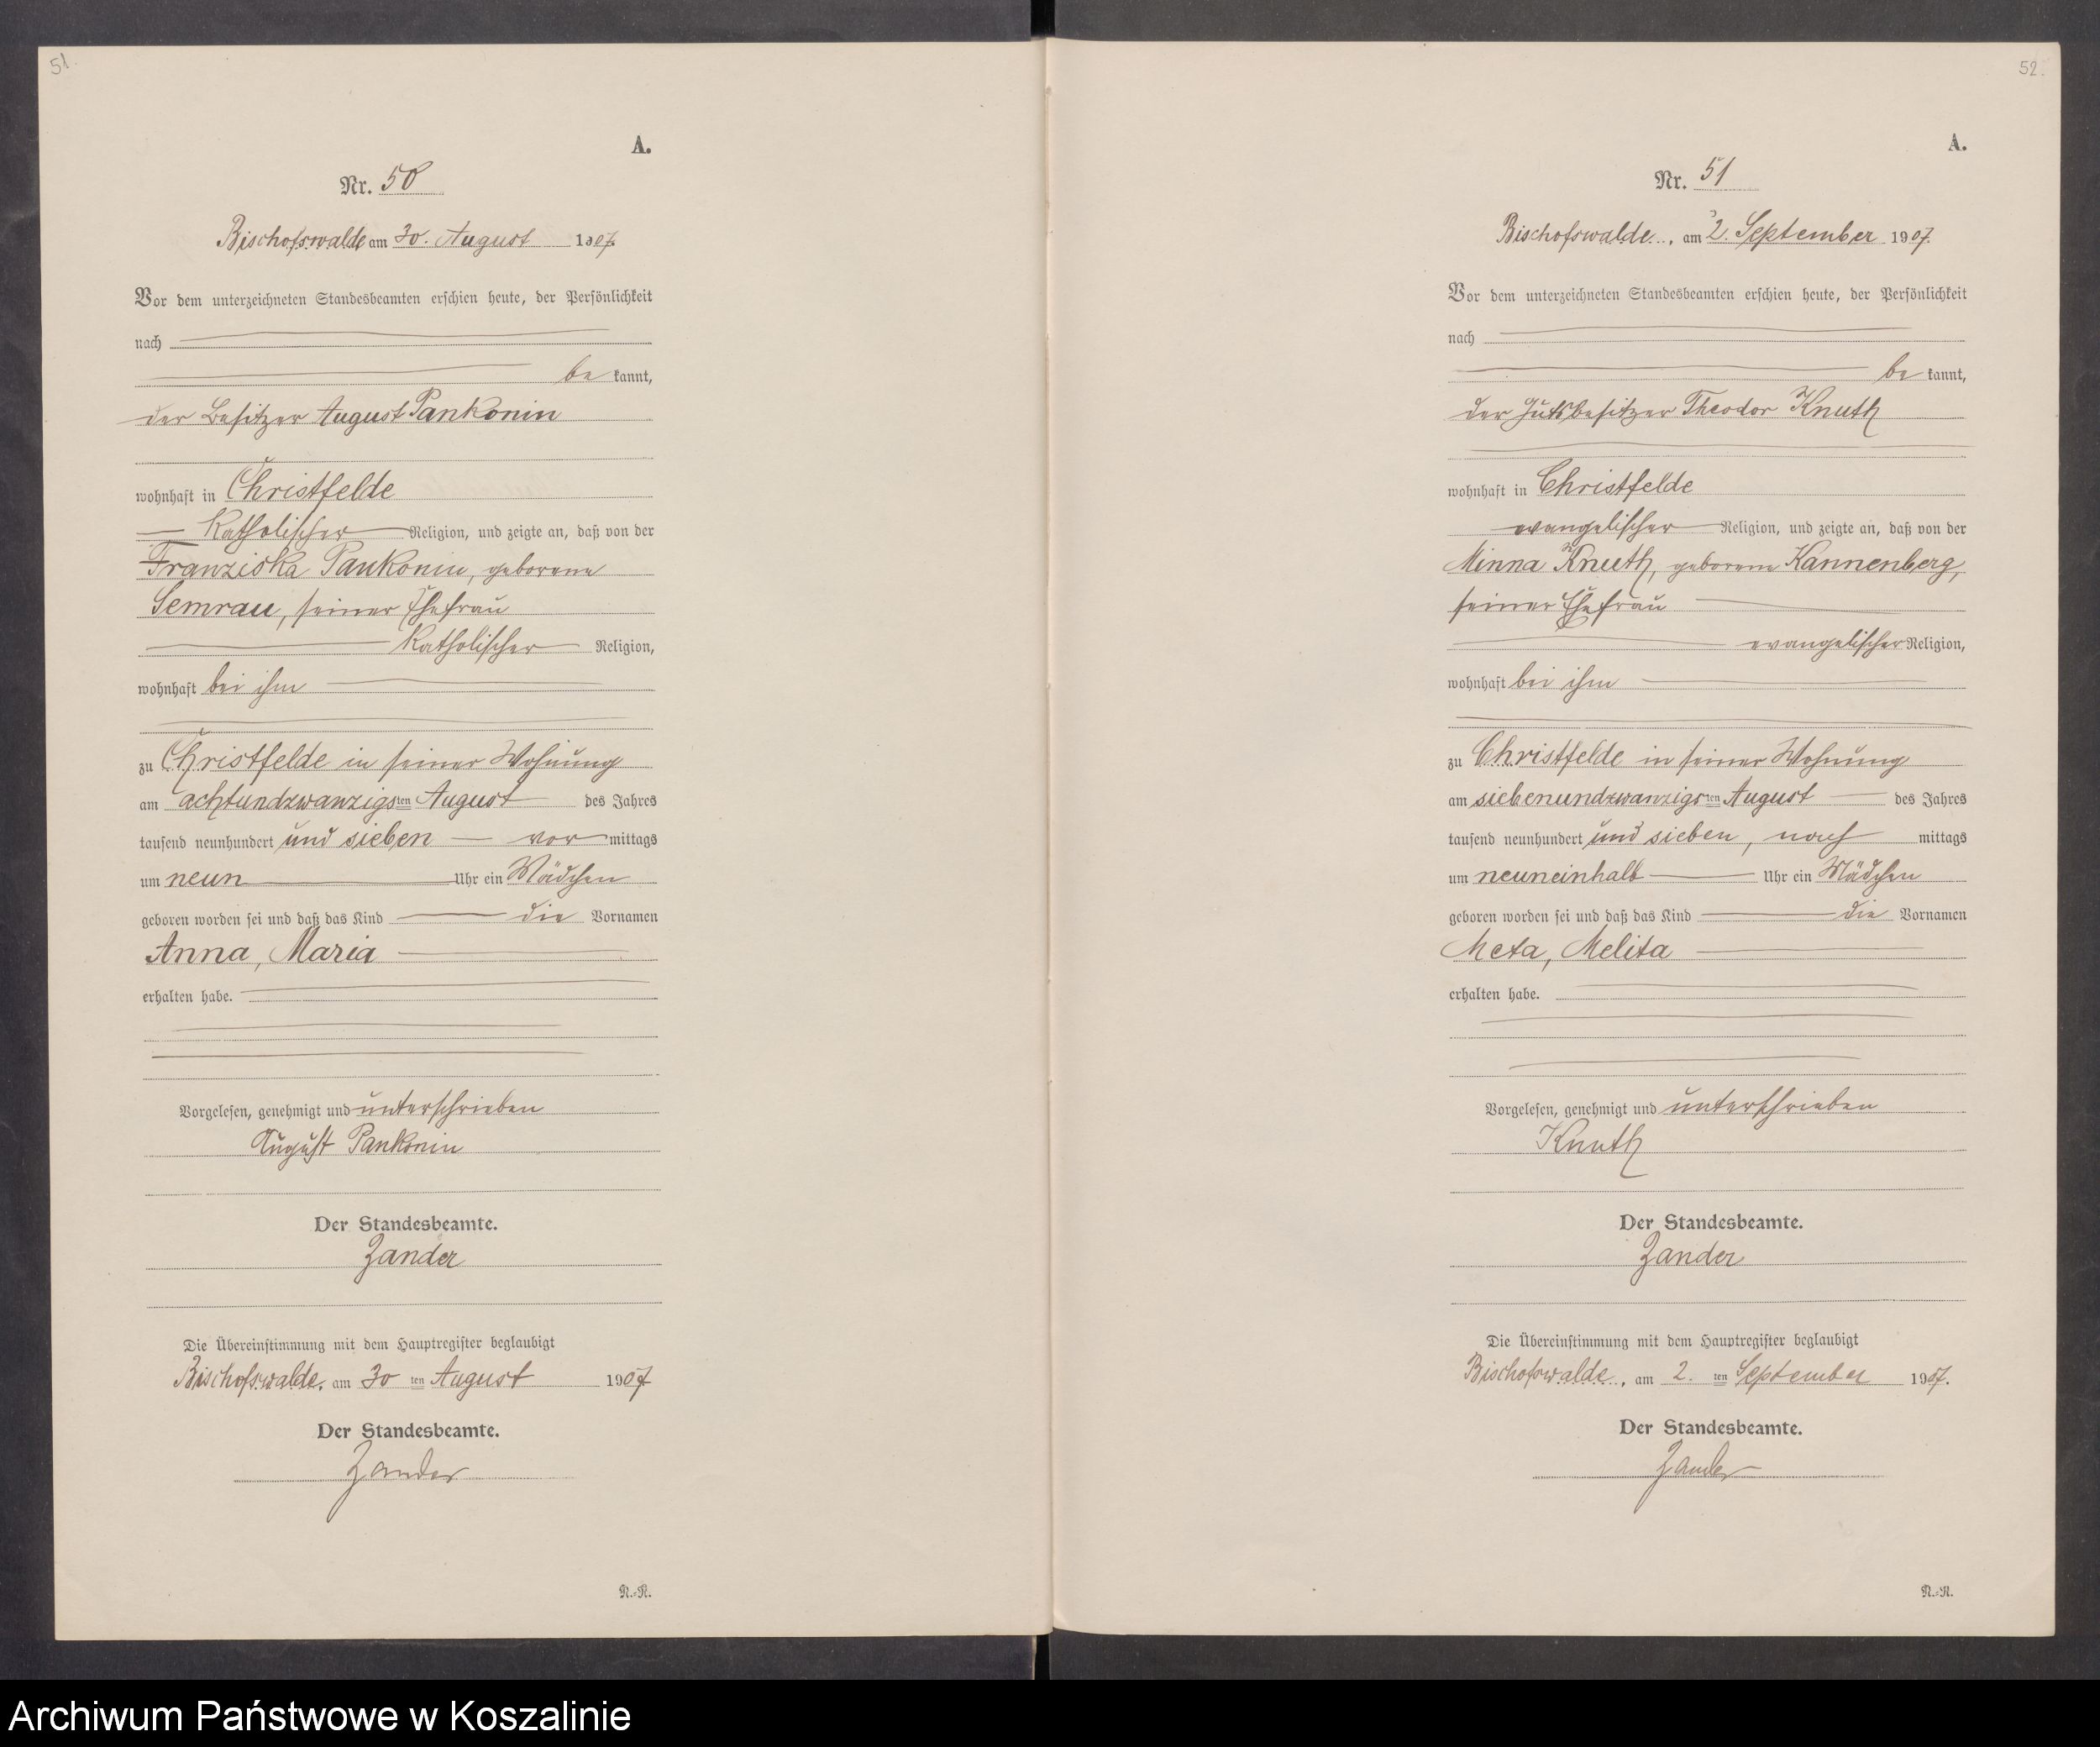 51.
A.
Nr. 50
Bischofswalde am 30. August 1907.
Vor dem unterzeichneten Standesbeamten erschien heute, der Persönlichkeit
nach
be kannt,
der Besitzer August Pankonin
wohnhaft in Christfelde
katholischer Religion, und zeigte an, daß von der
Franziska Pankonin, geborene
Semrau, seiner Ehefrau
katholischer Religion,
wohnhaft bei ihm
zu Christfelde in seiner Wohnung
am achtundzwanzigsten August des Jahres
tausend neunhundert und sieben vor mittags
um neun Uhr ein Mädchen
geboren worden sei und daß das Kind die Vornamen
Anna, Maria
erhalten habe.
Vorgelesen, genehmigt und unterschrieben
August Pankonin
Der Standesbeamte.
Zander
Die Übereinstimmung mit dem Hauptregister beglaubigt
Bischofswalde, am 30 ten August 1907
Der Standesbeamte.
Zander
N.-R.
52.
A.
Nr. 51
Bischofswalde, am 2. September 1907.
Vor dem unterzeichneten Standesbeamten erschien heute, der Persönlichkeit
nach
be kannt,
der Gutsbesitzer Theodor Knuth
wohnhaft in Christfelde
evangelischer Religion, und zeigte an, daß von der
Minna Knuth, geborene Kannenberg,
seiner Ehefrau
evangelischer Religion,
wohnhaft bei ihm
zu Christfelde in seiner Wohnung
am siebenundzwanzigsten August des Jahres
tausend neunhundert und sieben, nach mittags
um neuneinhalb Uhr ein Mädchen
geboren worden sei und daß das Kind die Vornamen
Meta, Melita
erhalten habe.
Vorgelesen, genehmigt und unterschrieben
Knuth
Der Standesbeamte.
Zander
Die Übereinstimmung mit dem Hauptregister beglaubigt
Bischofswalde, am 2. ten September 1907.
Der Standesbeamte.
Zander
N.-R.
Archiwum Państwowe w Koszalinie